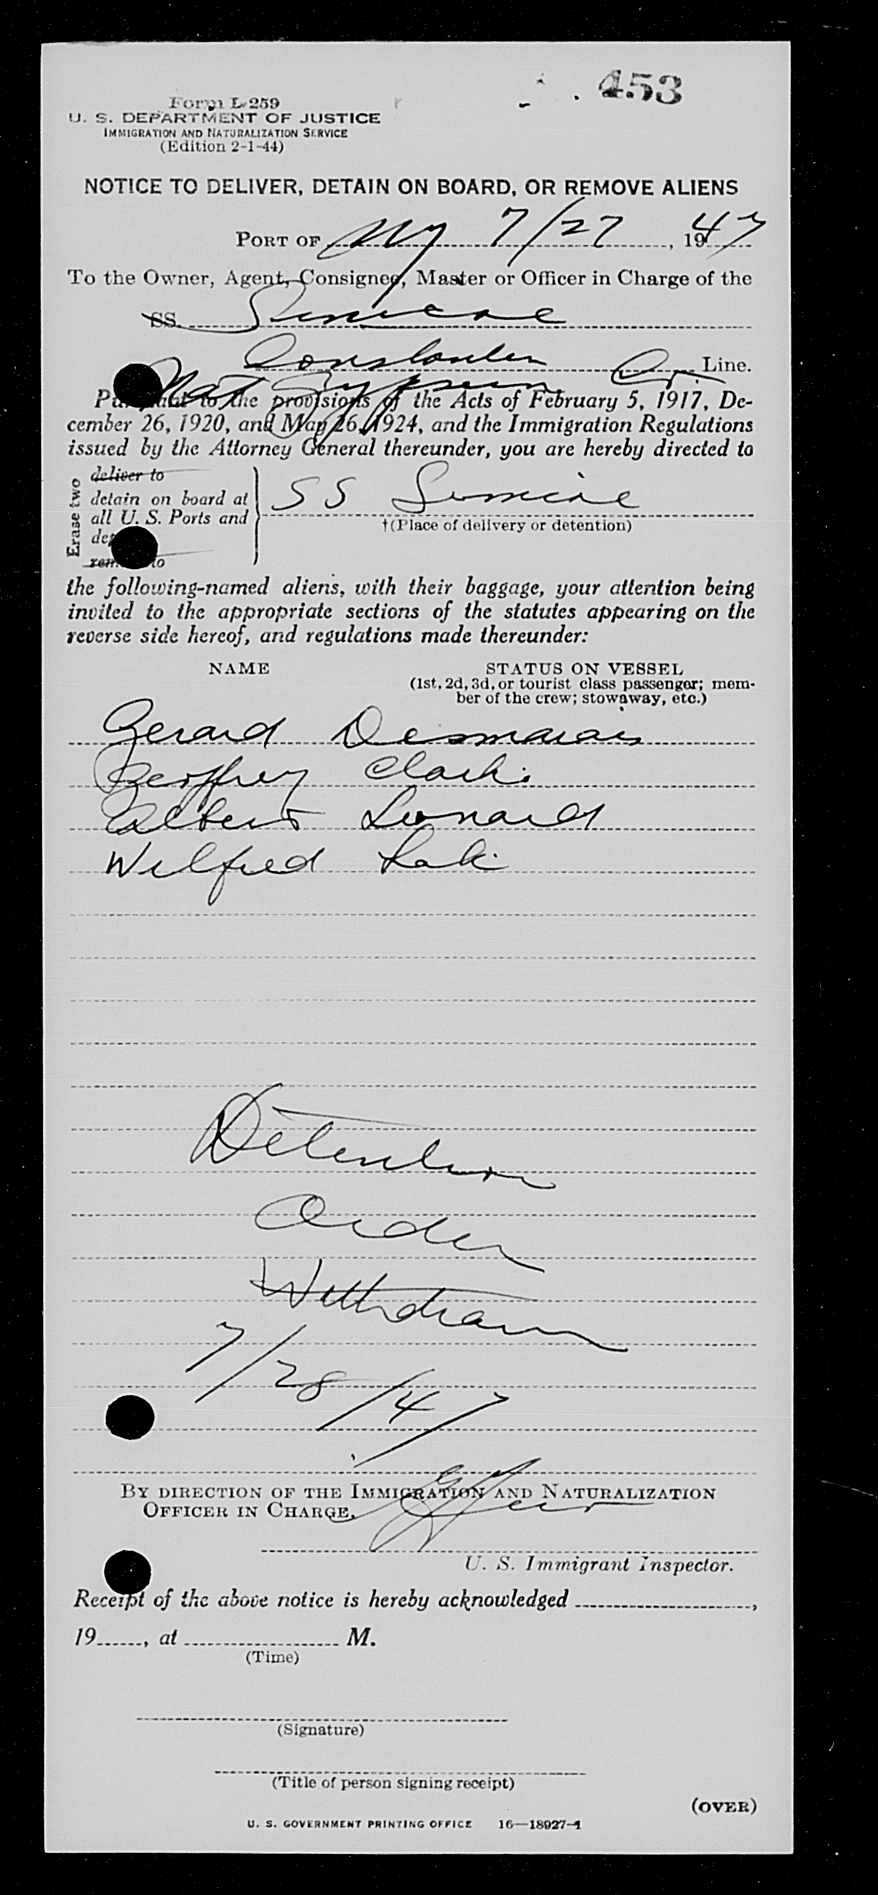 453
Form I-259
U. S. DEPARTMENT OF JUSTICE
IMMIGRATION AND NATURALIZATION SERVICE
(Edition 2-1-44)
NOTICE TO DELIVER, DETAIN ON BOARD, OR REMOVE ALIENS
PORT OF NY 7/27, 1947
To the Owner, Agent, Consignee, Master or Officer in Charge of the
SS.
Line.
Nat Gypsum
Pursuant to the provisions of the Acts of February 5, 1917, De-
cember 26, 1920, and May 26, 1924, and the Immigration Regulations
issued by the Attorney General thereunder, you are hereby directed to
Erase two
deliver to
detain on board at
all U. S. Ports and
remove to
SS
†(Place of delivery or detention)
the following-named aliens, with their baggage, your attention being
invited to the appropriate sections of the statutes appearing on the
reverse side hereof, and regulations made thereunder:
NAME STATUS ON VESSEL
(1st, 2d, 3d, or tourist class passenger; mem-
ber of the crew; stowaway, etc.)
Gerard Desmarais
Geoffrey Clark
Albert Leonard
Wilfred
Detention
Order
Withdrawn
7/28/47
BY DIRECTION OF THE IMMIGRATION AND NATURALIZATION
OFFICER IN CHARGE.
U. S. Immigrant Inspector.
Receipt of the above notice is hereby acknowledged ,
19 , at M.
(Time)
(Signature)
(Title of person signing receipt)
(OVER)
U. S. GOVERNMENT PRINTING OFFICE 16—18927-1